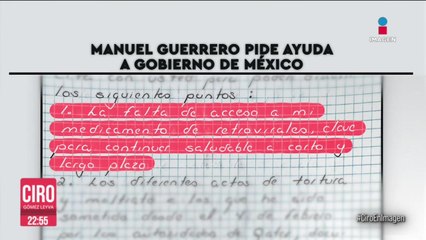 IMAGEN
MANUEL GUERRERO PIDE AYUDA
A GOBIERNO DE MÉXICO
con usted para poder
los siguientes puntos:
1. La falta de acceso a mi
medicamento de retrovirales, clave
para continuar saludable a corto y
largo plazo
2. Los diferentes actos de tortura
y maltrato a los que he sido
sometido desde el de febrero
por las autoridades de Qatar,
CIRO
GÓMEZ LEYVA
22:55
#CiroEnImagen